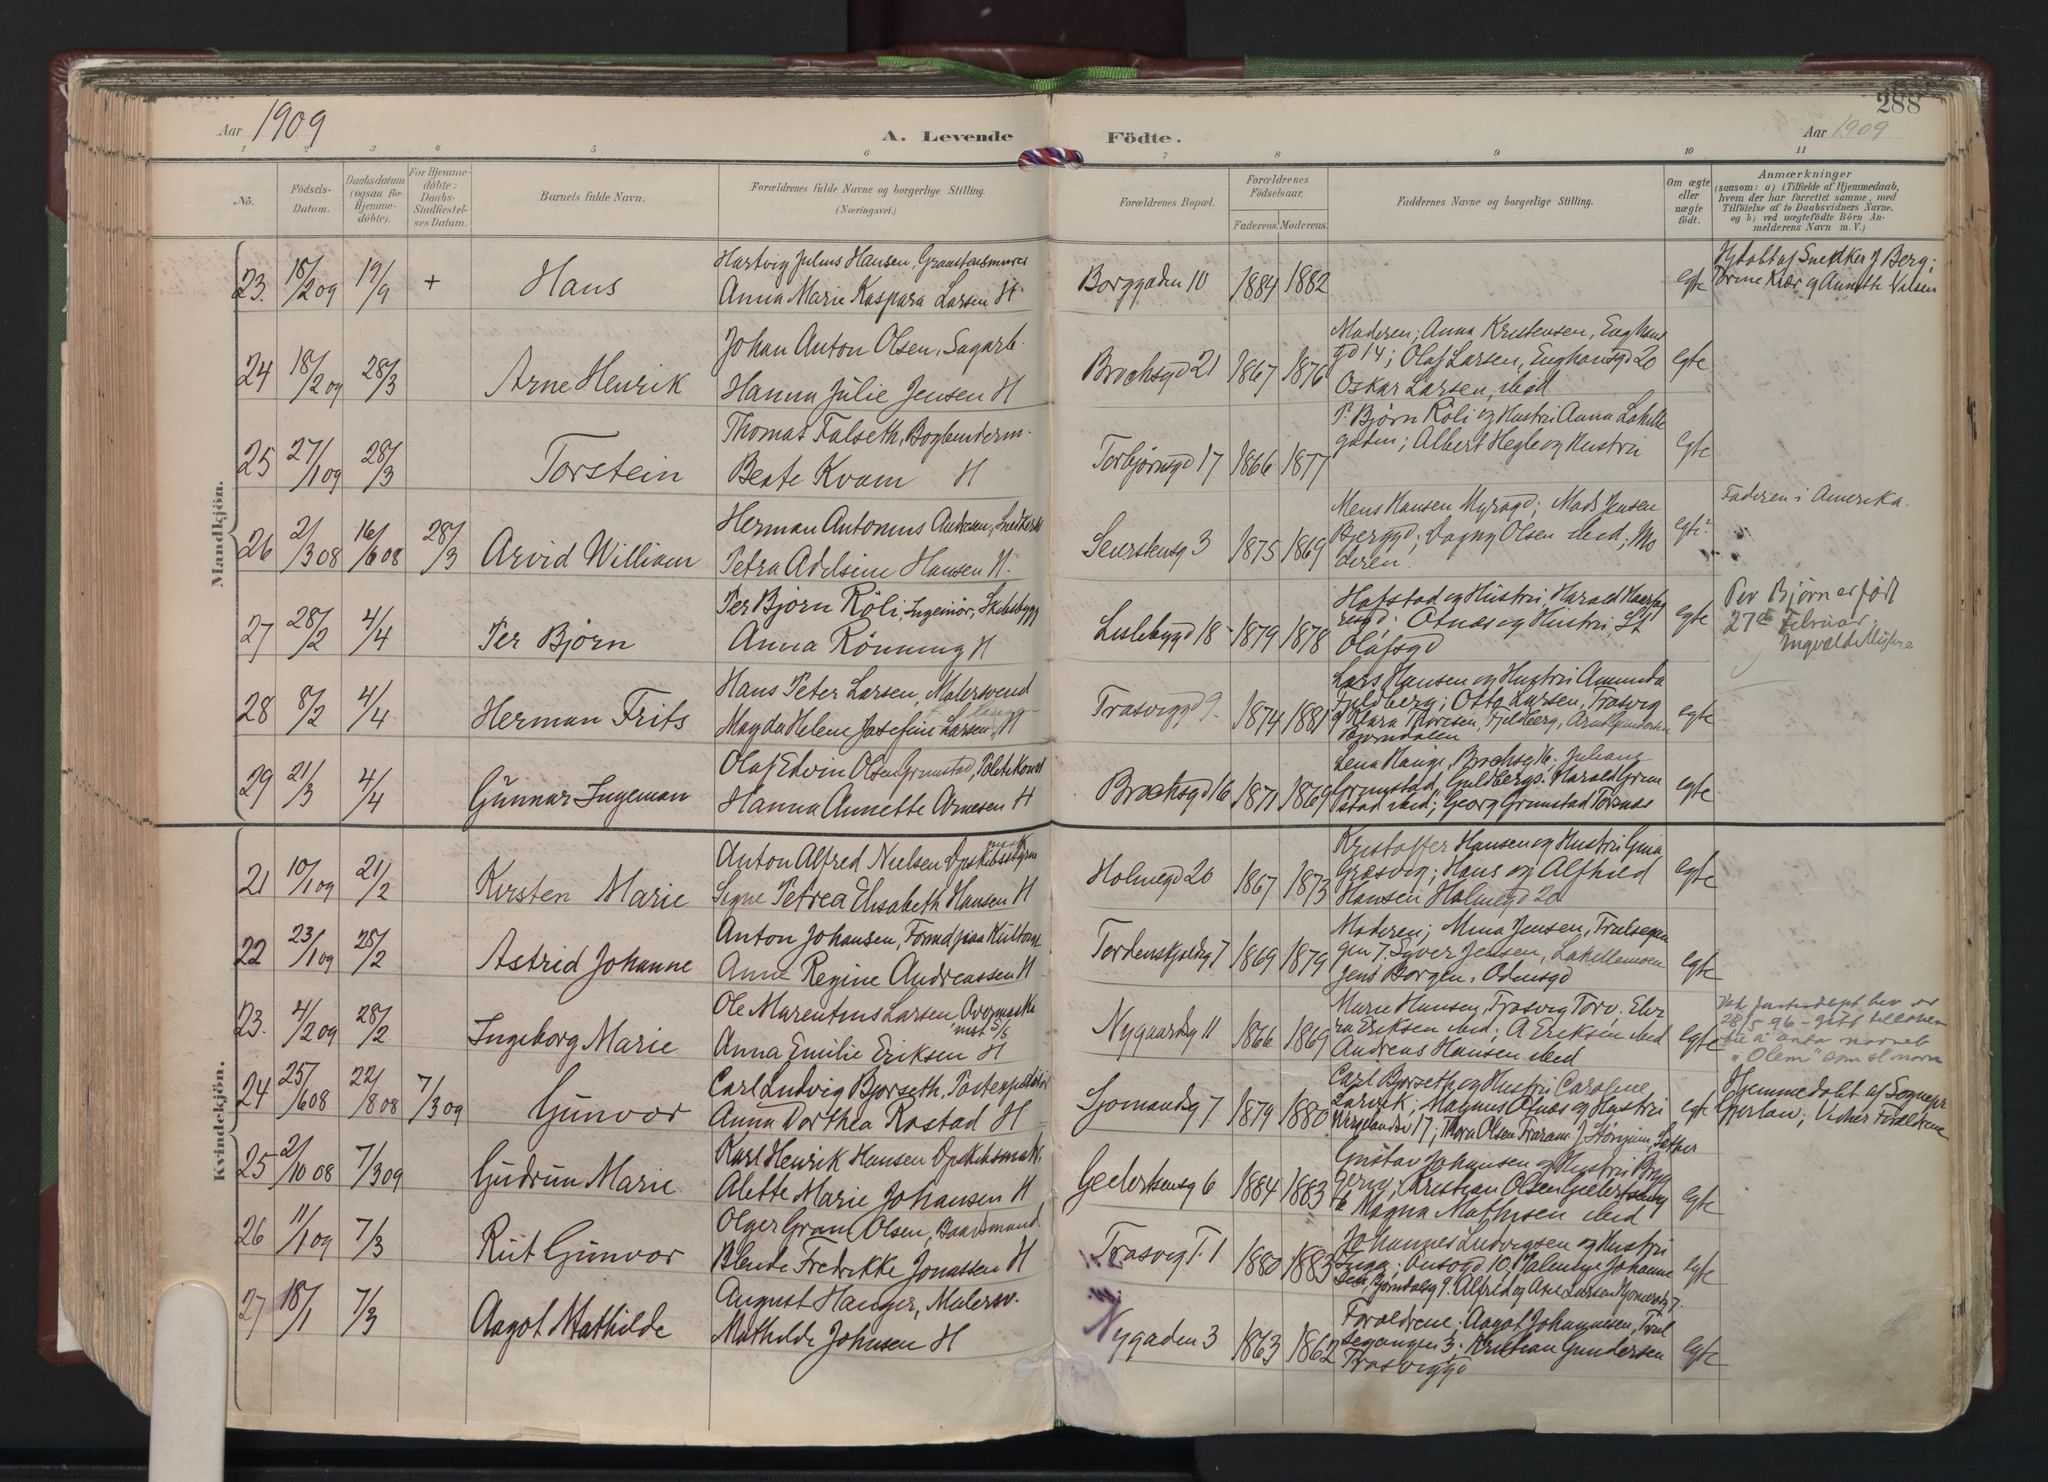 288
Aar 1909
A. Levende Födte.
Aar 1909
1 2 3 4 5 6 7 8 9 10 11
No.
Födsels-Datum.
Daabsdatum (ogsaa for Hjemme-døbte).
For Hjemme-døbte: Daabs-Stadfæstel-ses Datum.
Barnets fulde Navn.
Forældrenes fulde Navne og borgerlige Stilling.
(Næringsvei.)
Forældrenes Bopæl.
Forældrenes Födselsaar.
Faderens. Moderens.
Faddernes Navne og borgerlige Stilling.
Om ægte eller uægte født.
Anmærkninger
(saasom: a) i Tilfælde af Hjemmedaab,
hvem der har forrettet samme, med
Tilføielse af to Daabsvidners Navne.
og b) ved uægtefødte Börn An-
melderens Navn m. V.)
Mandkjön.
23. 18/2 09 19/9 + Hans
Hartvig Julius Hansen,
Anna Marie Kaspara Larsen H
Borggaden 10 1884 1882 egte
24 18/2 09 28/3 Arne Henrik
Johan Anton Olsen, Sagarb.
Hanna Julie Jensen H
Brochsgd 21 1867 1876
Moderen; Anna Kristensen, Enghaus
gd 14; Olaf Larsen, Enghausgd 20
Oskar Larsen, ibid
egte
25 27/1 09 28/3 Torstein
Thomas Falseth, Bogbinderm.
Beate Kvam H
Torbjørnsgd 17 1866 1877
P. Bjørn Röli og Hustri Anna
gaden; Albert Hegle og Hustri
egte
26 2/3 08 16/6 08 28/3 Arvid William
Herman Antonius Andresen,
Petra Adelsine Hansen H.
1875 1869
Hansen Myragd; Mads Jensen
Bjerggd; Dagny Olsen ibid; Mo
deren.
egte
Faderen i Amerika.
27 28/2 4/4 Per Björn
Per Bjørn Röli, Ingeniör, Skibsbygg
Anna Rönning H
Lislebygd 18 1879 1878
Hafstad og Hustri, Harald
Otnæs og Hustri, St
Olafsgd
egte
Per Bjørn er født
27de Februar.
28 8/2 4/4 Herman Frits
Hans Peter Larsen, Malersvend
Magda Helene Josefine Larsen H
Trosviggd 9. 1874 1881
Lars Hansen og Hustri Amunda
Fjeldberg; Otto Larsen, Trosvig
Klara Thoresen, Fjeldberg,
Bjørndalen
egte
29 21/3 4/4 Gunnar Ingeman
Olaf Edvin Olsen Grimstad, Politikonst
Hanna Annette Arnesen H
Brochsgd 16 1871 1869
Lena Hauge, Brochsg 16;
Grimstad, Guldbergs. Harald Grim
stad ibid; Georg Grimstad Torsnæs
egte
Kvindekjön.
21 10/1 09 21/2 Kirsten Marie
Anton Alfred Nielsen
Signe Petrea Elisabeth Hansen H
Holmegd 20 1867 1873
Kristoffer Hansen og Hustri Gina
Græsvig; Hans og Alfhild
Hansen Holmegd 20
egte
22 23/1 09 28/2 Astrid Johanne
Anton Johansen,
Anna Regine Andreassen H
Tordenskjoldsg 7 1869 1879
Moderen; Mina Jensen, Trulsegan
gen 7. Syver Jensen, Lahellemoen
Jens Borgen, Odinsgd
egte
23. 4/2 09 28/2 Ingeborg Marie
Ole Marentius Larsen
Anna Emilie Eriksen H
Nygaardsg 11 1866 1869
Marie Hansen, Trosvig Torv. Elv
ra Eriksen ibid; A Eriksen ibid
Andreas Hansen ibid
egte
28/5-96 - gitt
å anta navnet
"Olem"
24 25/6 08 22/8 08 7/3 09 Gunvor
Carl Ludvig Bjørseth, Postexpeditør
Anna Dorthea Rostad H
Sjomandsg 7 1879 1880
Carl Bjørseth og Hustri Caroline
Larvik; Magnus Otnæs og Hustri
egte
Hjemmedøbt af Sognepr
Gjerløw;
25 2/10 08 7/3 09 Gudrun Marie
Karl Henrik Hansen
Alette Marie Johansen H
Geelertsensg 6 1884 1883
Gustav Johansen og Hustri
Kristian Olsen
Magna Mathisen ibid
egte
26 11/1 09 7/3 Rut Gunvor
Olger Gran Olsen, Baadsmand
Blenda Fredrikke Jonassen H
Trosvig T. 1 1880 1883
Johannes Ludvigsen og Hustri
Inga;
Bjørndalsg 9. Alfred og Larsen
egte
27 18/1 7/3 Aagot Mathilde
August Hauger, Malersv.
Mathilde Johnsen H
Nygaden 3 1863 1862
Forældrene; Aagot Johannesen, Trul
segangen 3; Kristian Gundersen
Trosviggd
egte